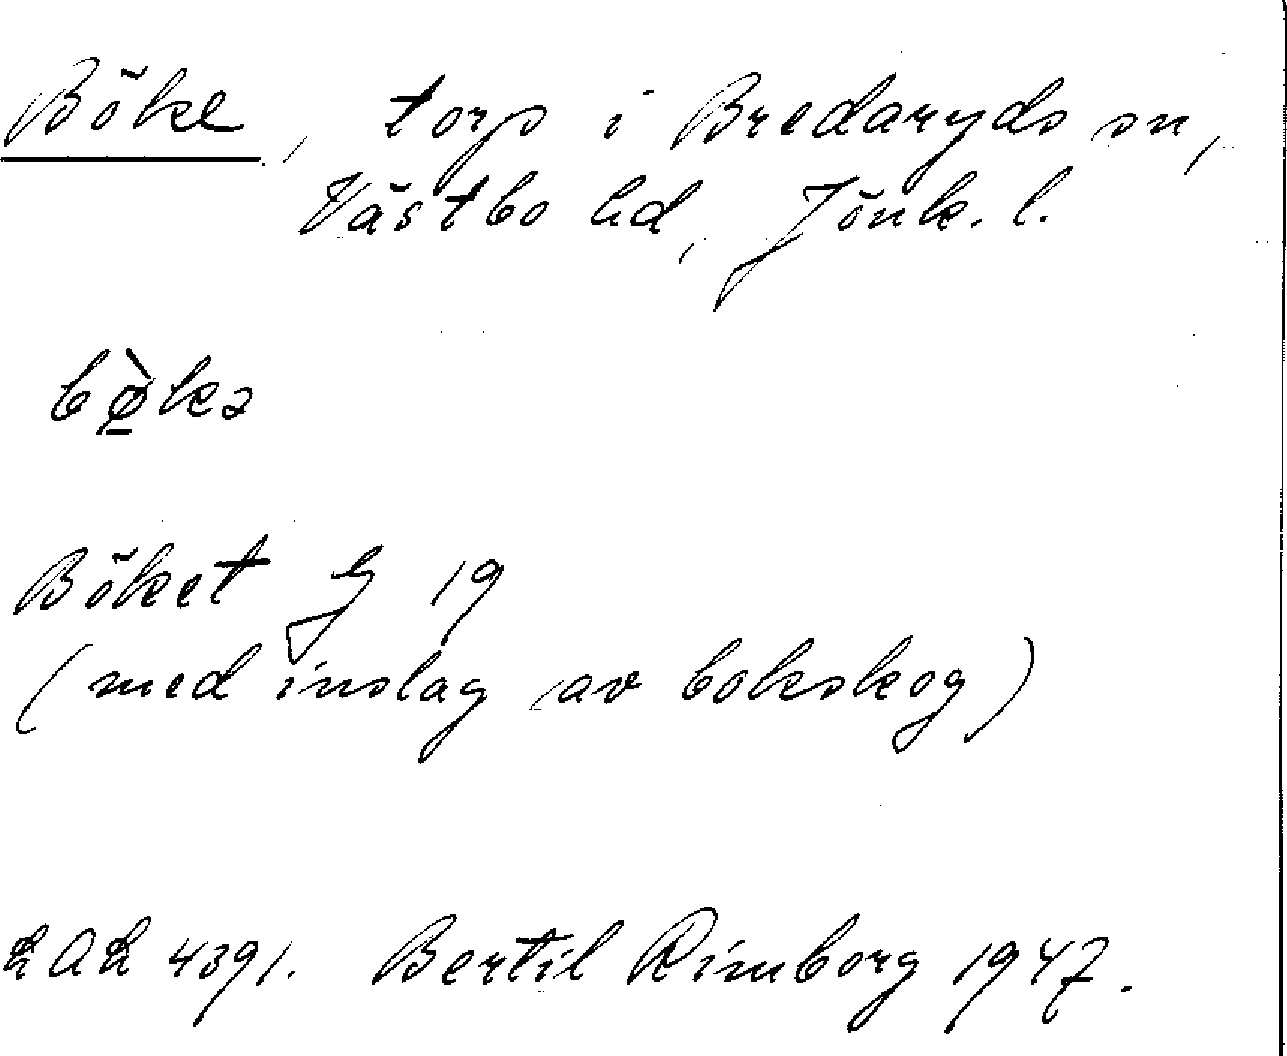 Böke, torp i Bredaryds sn,
Västbo hd, Jönk. l.
bø̲̀kə
Böket G 19
(med inslag av bokskog)
LAL 4391. Bertil Rimborg 1947.